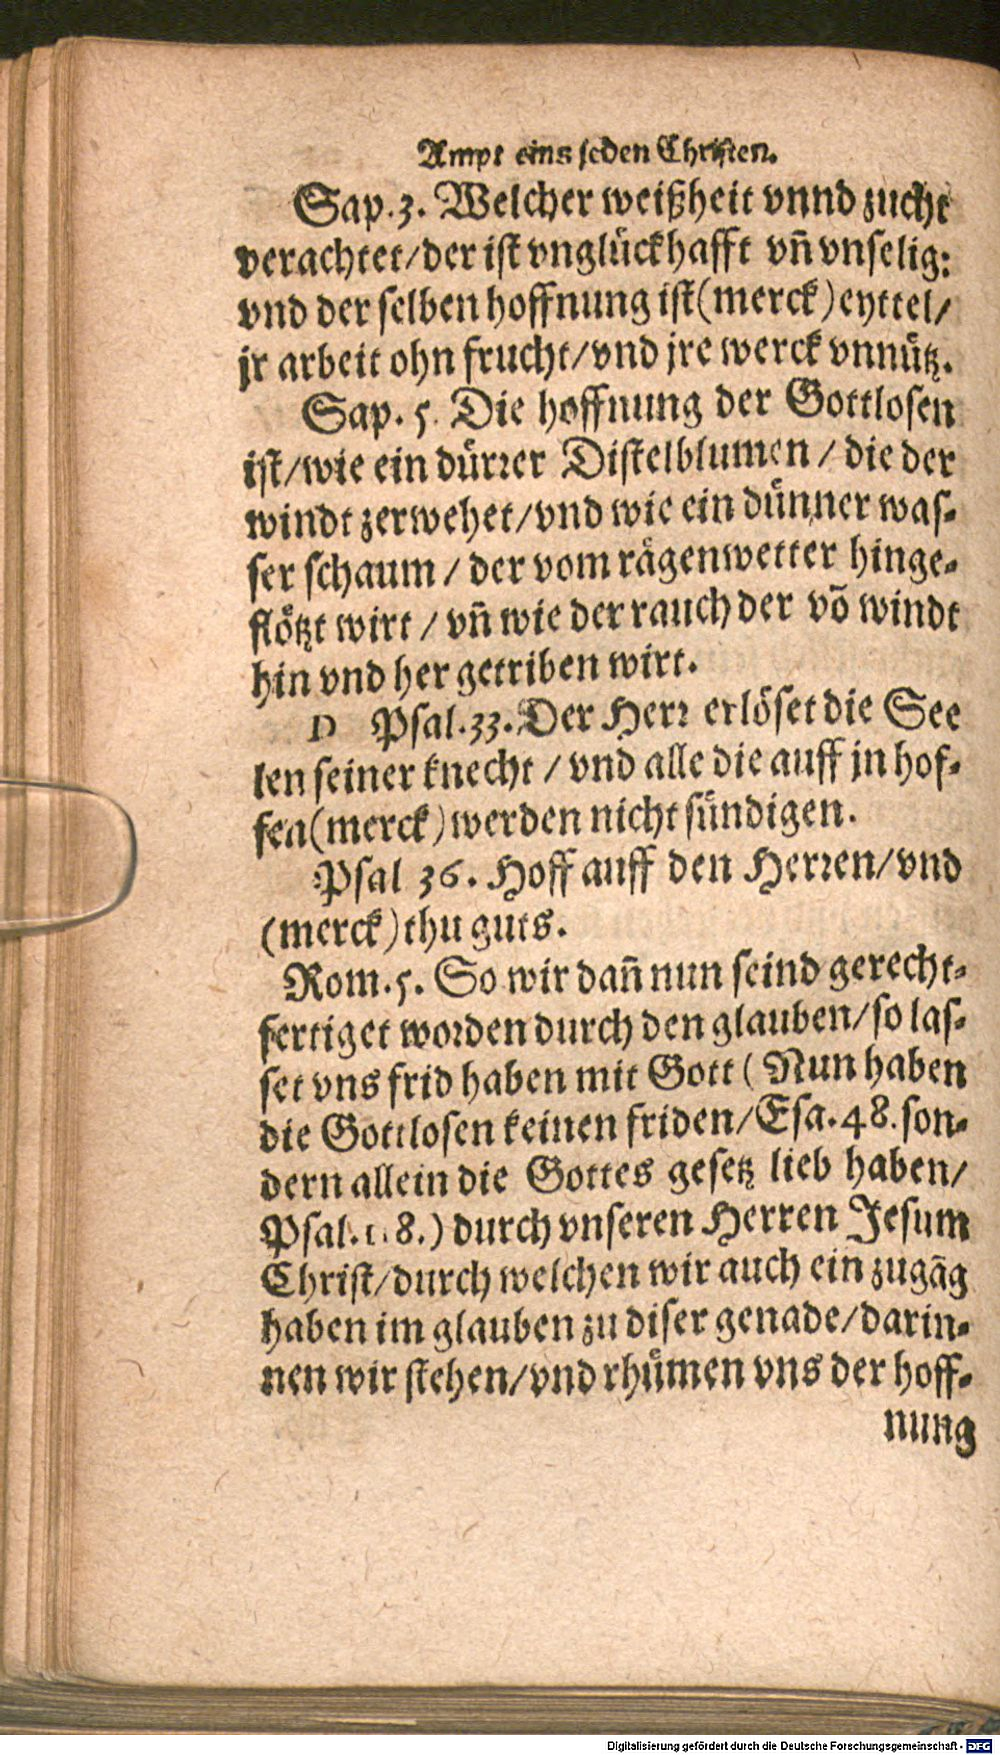 Ampt eins jeden Christen.
Sap. 3. Welcher weißheit vnnd zucht
verachtet/der ist vnglückhafft vñ vnselig:
vnd der selben hoffnung ist (merck) eyttel/
jr arbeit ohn frucht/vnd jre werck vnnütz.
Sap. 5. Die hoffnung der Gottlosen
ist/wie ein dürrer Distelblumen / die der
windt zerwehet/vnd wie ein dünner was-
ser schaum / der vom rägenwetter hinge-
flötzt wirt / vñ wie der rauch der võ windt
hin vnd her getriben wirt.
D Psal. 33. Der Herr erlöset die See
len seiner knecht / vnd alle die auff jn hof-
fen (merck) werden nicht sündigen.
Psal 36. Hoff auff den Herren/vnd
(merck) thu guts.
Rom. 5. So wir dañ nun seind gerecht-
fertiget worden durch den glauben/so las-
set vns frid haben mit Gott ( Nun haben
die Gottlosen keinen friden/Esa. 48. son-
dern allein die Gottes gesetz lieb haben/
Psal. 118.) durch vnseren Herren Jesum
Christ/durch welchen wir auch ein zugãg
haben im glauben zu diser genade/darin-
nen wir stehen/vnd rhümen vns der hoff-
nung
Digitalisierung gefördert durch die Deutsche Forschungsgemeinschaft - DFG